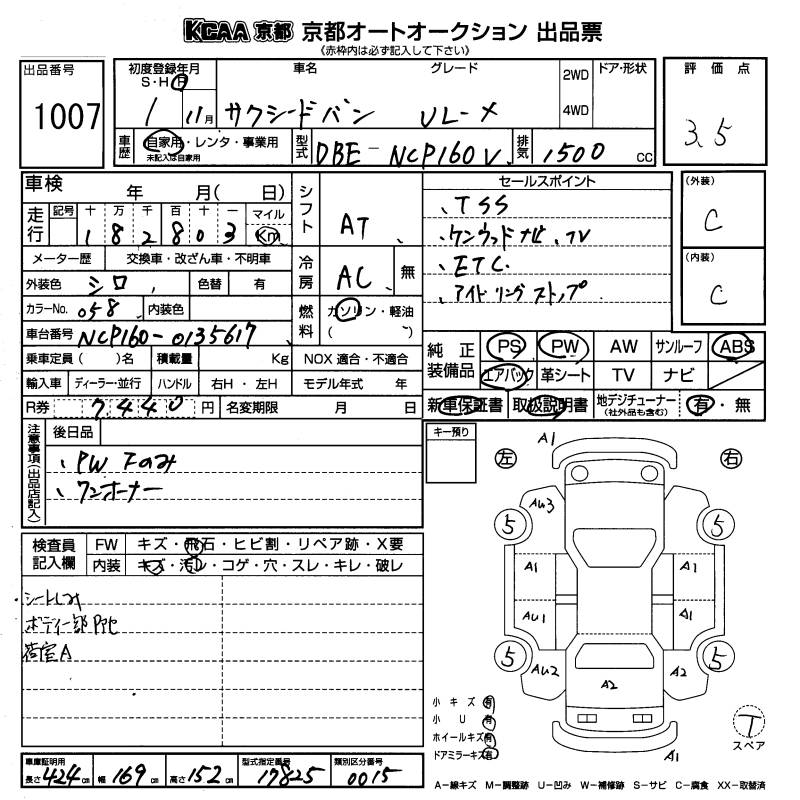 KCAA 京都 京都オートオークション 出品票
《赤枠内は必ず記入して下さい》
出品番号
1007
初度登録年月
S・H・R
1 11月
車名
サクシードバン
グレード
UL-X
2WD
4WD
ドア・形状
評価点
3.5
車歴
自家用・レンタ・事業用
未記入は自家用
型式
DBE-NCP160V
排気
1500 cc
車検 年 月( 日)
走行
記号 十 万 千 百 十 一 マイル
1 8 2 8 0 3 Km
メーター歴 交換車・改ざん車・不明車
外装色 シロ 色替 有
カラーNo. 058 内装色
車台番号 NCP160-0135617
乗車定員( )名 積載量 Kg
輸入車 ディーラー・並行 ハンドル 右H・左H
R券 7440 円 名変期限 月 日
シフト AT
冷房 AC 無
燃料 ガソリン・軽油
( )
NOX 適合・不適合
モデル年式 年
セールスポイント
、TSS
、ケンウッドナビ、TV
、ETC.
、アイドリングストップ
(外装)
C
(内装)
C
純正装備品
PS PW AW サンルーフ ABS
エアバック 革シート TV ナビ
新車保証書 取扱説明書 地デジチューナー(社外品も含む) 有・無
注意事項(出品店記入)
後日品
、PW Fのみ
、ワンオーナー
キー預り
検査員記入欄
FW キズ・飛石・ヒビ割・リペア跡・X要
内装 キズ・汚レ・コゲ・穴・スレ・キレ・破レ
・シートしみ
ボディー部
荷室A
左 右
A1
AU3
5 5
A1 A1
AU1 A1
5 5
AU2 A2 A2
A1
小キズ 有
小U 有
ホイールキズ 有
ドアミラーキズ 有
T
スペア
車庫証明用
長さ 424 cm 幅 169 cm 高さ 152 cm
型式指定番号
17825
類別区分番号
0015
A-線キズ M-調整跡 U-凹み W-補修跡 S-サビ C-腐食 XX-取替済